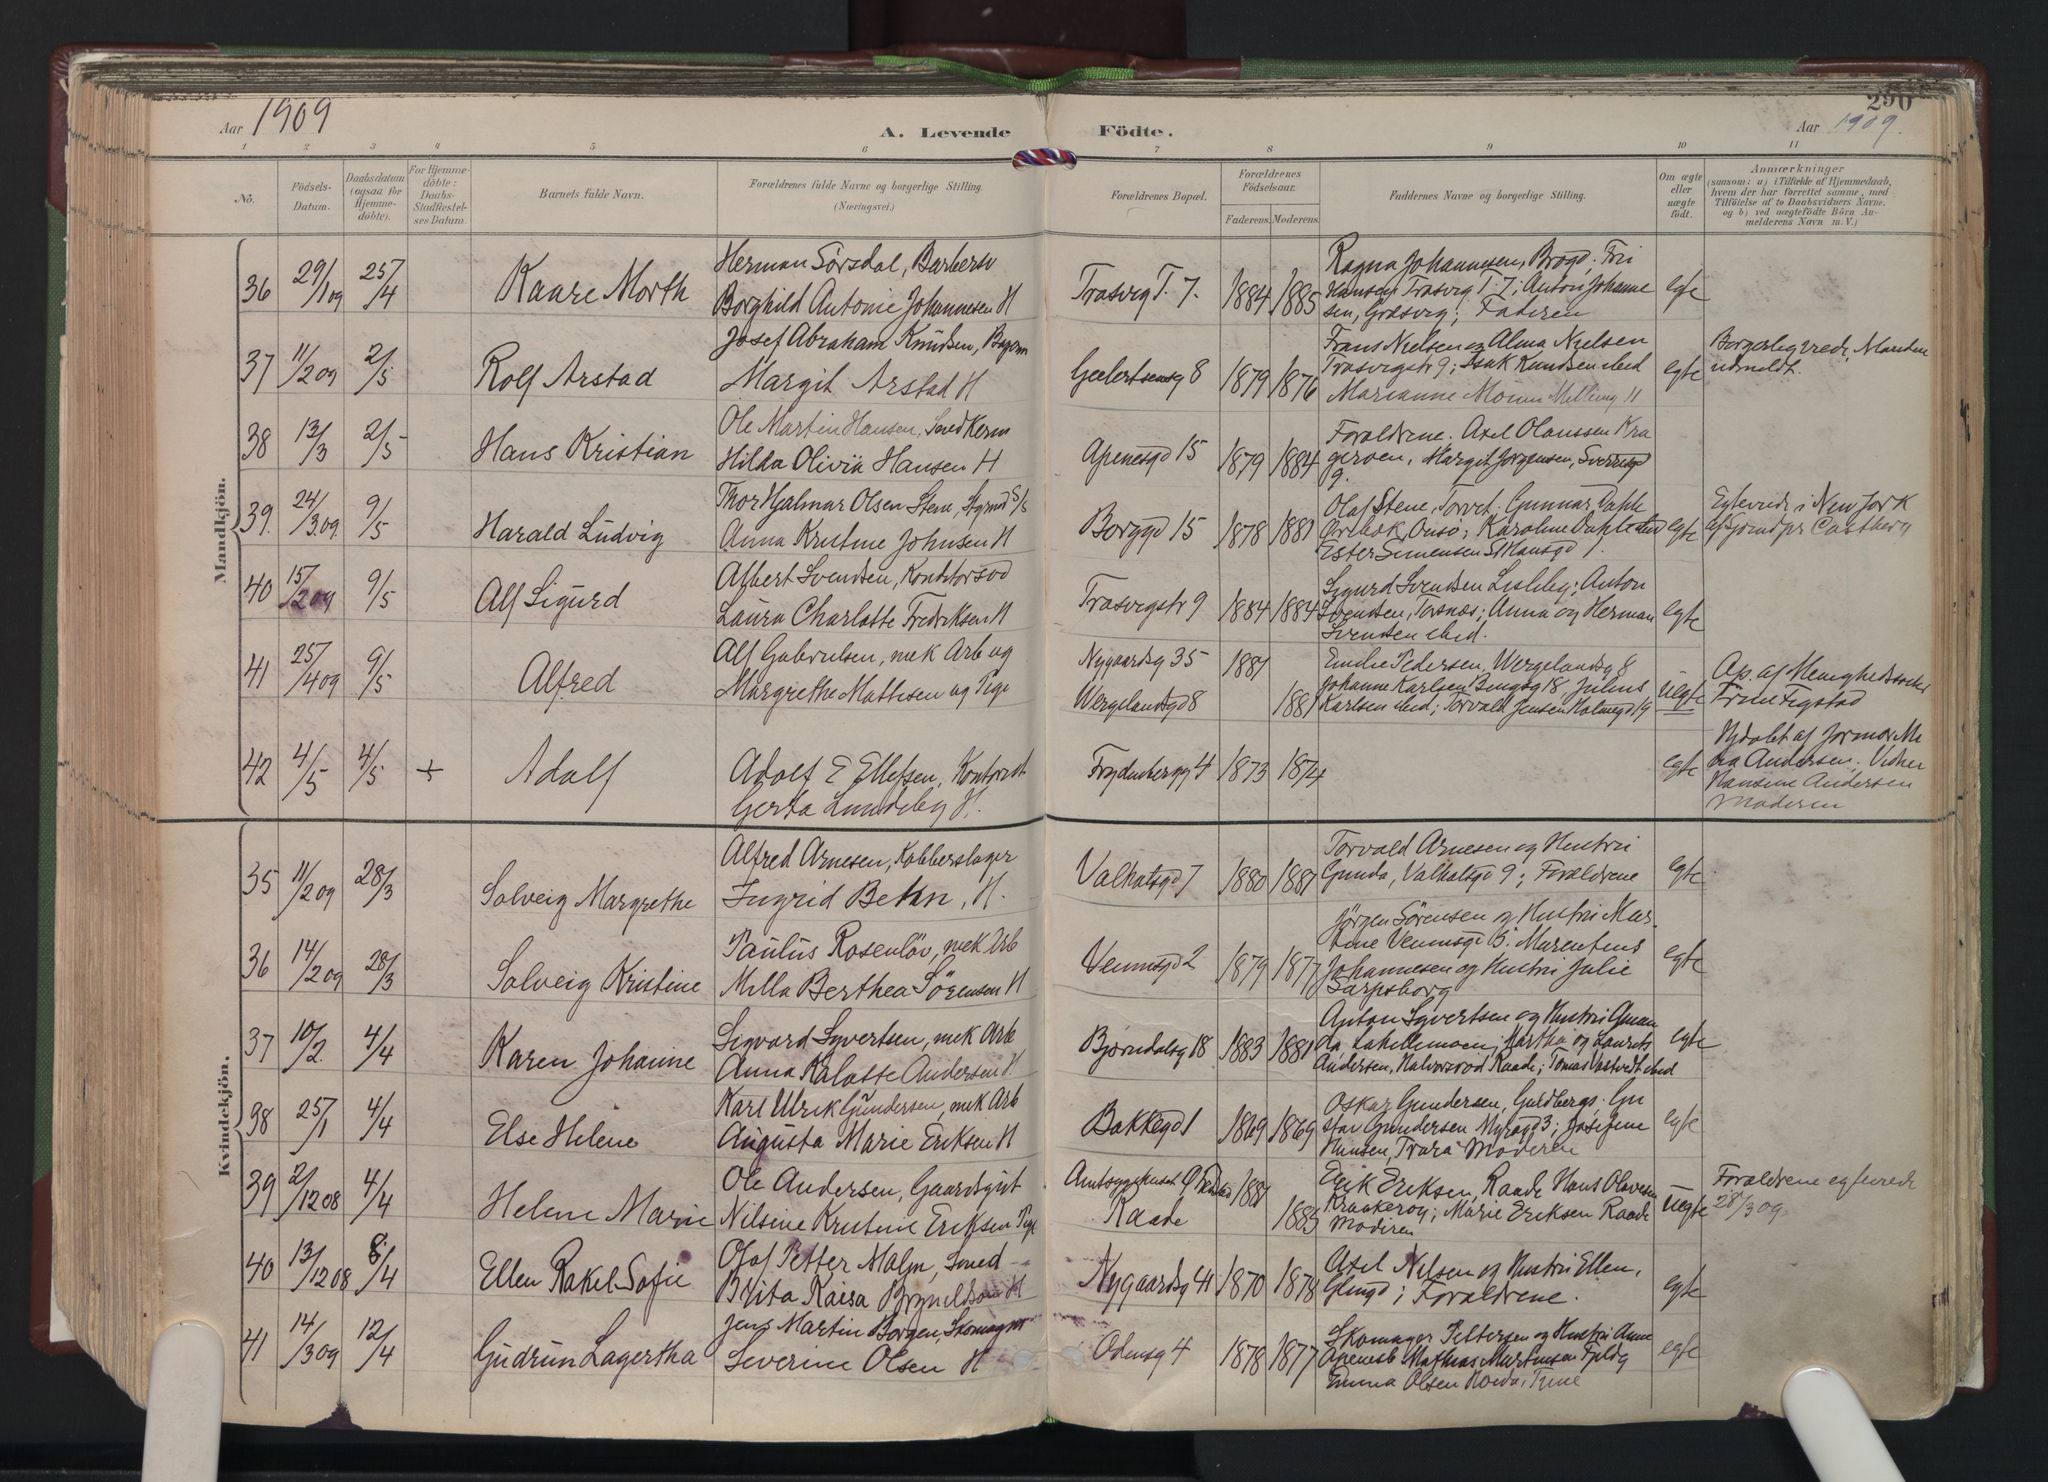 290
Aar 1909
A. Levende Födte.
Aar 1909.
1 2 3 4 5 6 7 8 9 10 11
No.
Födsels-Datum.
Daabsdatum (ogsaa for Hjemmedöbte).
For Hjemmedöbte: Daabs-Stadfæstelses Datum.
Barnets fulde Navn.
Forældrenes fulde Navne og borgerlige Stilling.
(Næringsvei.)
Forældrenes Bopæl.
Forældrenes Födselsaar.
Faderens. Moderens.
Faddernes Navne og borgerlige Stilling.
Om ægte eller uægte födt.
Anmærkninger
(saasom: a) i Tilfælde af Hjemmedaab, hvem der har forrettet samme, med Tilföielse af to Daabsvidners Navne. og b) ved uægtefödte Börn Anmelderens Navn m. V.)
Mandkjön.
36 29/1 09 25/4 Kaare Morth
Herman Sörsdal, Barbersv
Borghild Antonie Johannesen H
Trosvig T. 7. 1884 1885
Ragna Johannesen, Brogd, Fri
Hansen Trosvig T. 7; Anton Johanne
sen, Græsvig; Faderen
egte
37 11/2 09 2/5 Rolf Arstad
Josef Abraham Knudsen,
Margit Arstad H
Geelertsensg 8 1879 1876
Frans Nielsen og Alma Nielsen
Trosvigstr 9; Isak Knudsen ibid
Marianne
egte
Borgerlig viede, Manden
udmeldt.
38 13/3 2/5 Hans Kristian
Ole Martin Hansen,
Hilda Olivia Hansen H
Apenesgd 15 1879 1884
Foraldrene. Axel Olaussen Kra
geroen, Margit Jorgensen,
9.
39. 24/3.09 9/5 Harald Ludvig
Thor Hjalmar Olsen Stene,
Anna Kristine Johnsen H
Borggd 15 1878 1881
Olaf Stene, Torvet. Gunnar Dahle
Onsö; Karoline Dahle ibid
Ester Simensen St Hansgd 1.
egte
Egteviede i New York
40 15/2 09 9/5 Alf Sigurd
Albert Svendsen,
Laura Charlotte Fredriksen H
Trosvigstr 9 1884 1884
Sigurd Svendsen Lisleby; Anton
Svendsen, Torsnæs; Anna og Herman
Svendsen ibid.
egte
41 25/4 09 9/5 Alfred
Alf Gabrielsen, mek Arb ug
Margrethe Mathisen ug Pige
Nygaardsg 35 1881
Wergelandsgd 8 1881
Emilie Pedersen, Wergelandsg 8
Johanne Karlsen 18, Julius
Karlsen ibid; Torvald Jensen 19
uegte
42 4/5 4/5 + Adolf
Adolf E Ellefsen, Kontorist
Gerda Lundeby H.
Frydenbergg 4 1873 1874
egte
Hjdöbt af Jormor
Andersen. Vidner
Hansine Andersen
Moderen
Kvindekjön.
35 11/2 09 28/3 Solveig Margrethe
Alfred Arnesen, Kobberslager
Ingrid Behn, H.
Valhalsgd 7 1880 1881
Torvald Arnesen og Hustru
Gunda, Valhalsgd 9; Foraldrene
egte
36 14/2 09 28/3 Solveig Kristine
Paulus Rosenlöv, mek Arb
Milla Berthea Sörensen H
Vennsgd 2 1879 1877
Jörgen Sörensen og Hustru Mar-
tine Marentius
Johannesen og Hustru Julie
Sarpsborg
egte
37 10/2. 4/4 Karen Johanne
Sigvard Syvertsen, mek Arb
Anna Andersen H.
Bjorndalsg 18 1883 1881
Anton Syvertsen og Hustru Aman
da Lahellemoen; Martha og Laurits
Andersen, Halvorsrod Raade; Tomas ibid
egte
38 25/1 4/4 Else Helene
Karl Ulrik Gundersen, mek Arb
Augusta Marie Eriksen H
Bakkegd 1 1869 1869
Oskar Gundersen, Guldbergs. Gu
stav Gundersen 3; Josefine
Hansen, Trara Moderen
egte
39 2/12 08 4/4 Helene Marie
Ole Andersen, Gaardsgut
Nilsine Kristine Eriksen Pige
Raade 1881 1883
Erik Eriksen, Raade Hans Olavesen
Kraakeroy; Marie Eriksen Raade
Moderen
uegte
Foraldrene egteviede
28/3 09
40 13/12 08 8/4 Ellen Rakel Sofie
Olaf Petter Malm, Smed
Brita Kaisa Bryneldsen H
Nygaardsg 41 1870 1878
Axel Nilsen og Hustru Ellen,
Foraldrene.
egte
41 14/3 09 12/4 Gudrun Lagertha
Jens Martin Borgen, Skomager
Severine Olsen H
Odensg 4 1878 1877
Skomager Pettersen og Hustru Anne
Mathias Martinsen
Emma Olsen
egte